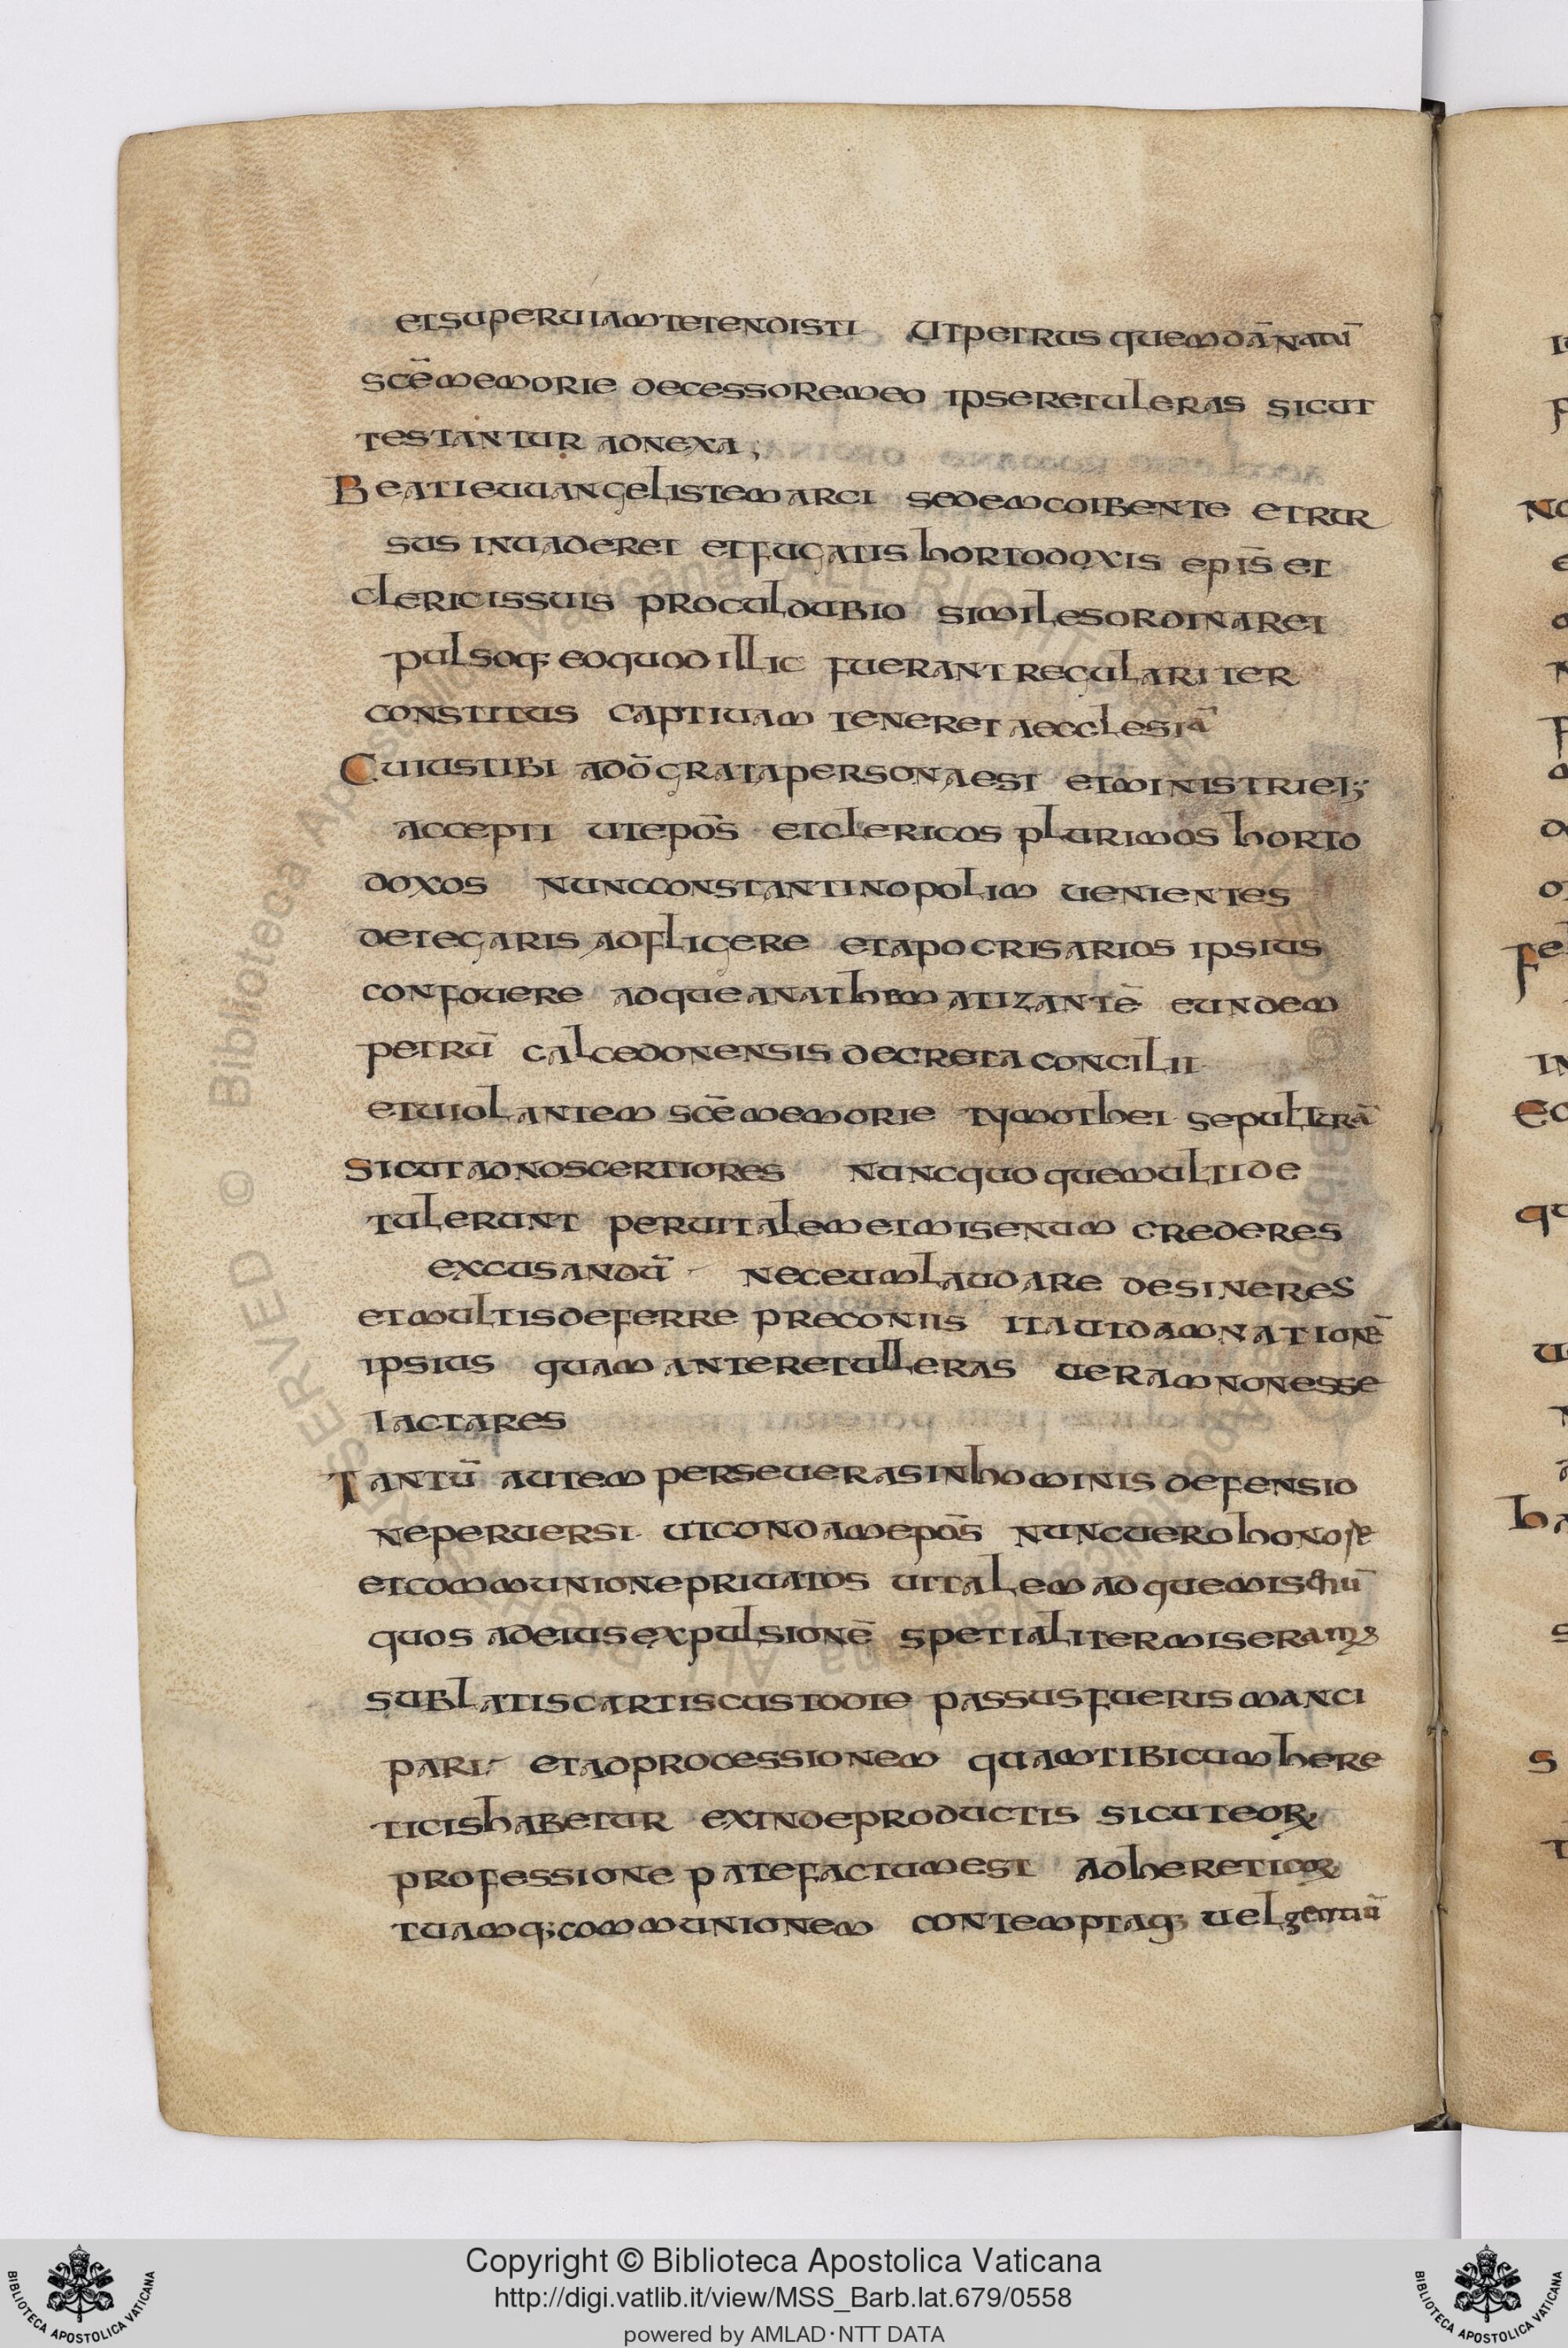 etsuperuiamtetendisti Utpetrus quemdānatū
scēmemorie decessoremeo ipseretuleras sicut
testantur adnexa;
Beatieuuangelistemarci sedemcoibente etrur
sus inuaderet etfugatis hortodoxis epīs et
clericissuis proculdubio similesordinaret
pulsoq; eoquod illic fuerant regulariter
constitus captiuam teneret aecclesiā
Cuiustibi adō gratapersonaest etministrieius
accepti utepōs etclericos plurimos horto
doxos nuncconstantinopolim uenientes
detegaris adfligere etapocrisarios ipsius
confouere adqueanathematizantē eundem
petrū calcedonensis decreta concilii
etuiolantem scēmemorie tymothei sepulturā
Sicut adnoscertiores nuncquoquemulti de
tulerunt peruitalemetmisenum crederes
excusandū neceumlaudare desineres
etmultisdeferre preconiis itautdamnationē
ipsius quam anteretulleras ueramnonesse
iactares
Tantū autem perseuerasinhominis defensio
neperuersi utcondamepōs nuncuerohonore
etcommunionepriuatos uitalem adquemisenū
quos adeiusexpulsionē spetialitermiseramus
sublatiscartiscustodie passusfueris manci
pari et adprocessionem quamtibicumhere
ticishabetur exindeproductis sicuteorꝝ
professione patefactumest adhereticorꝝ
tuamq;communionem contemptaq; uelgentiū
Copyright © Biblioteca Apostolica Vaticana
http://digi.vatlib.it/view/MSS_Barb.lat.679/0558
powered by AMLAD·NTT DATA